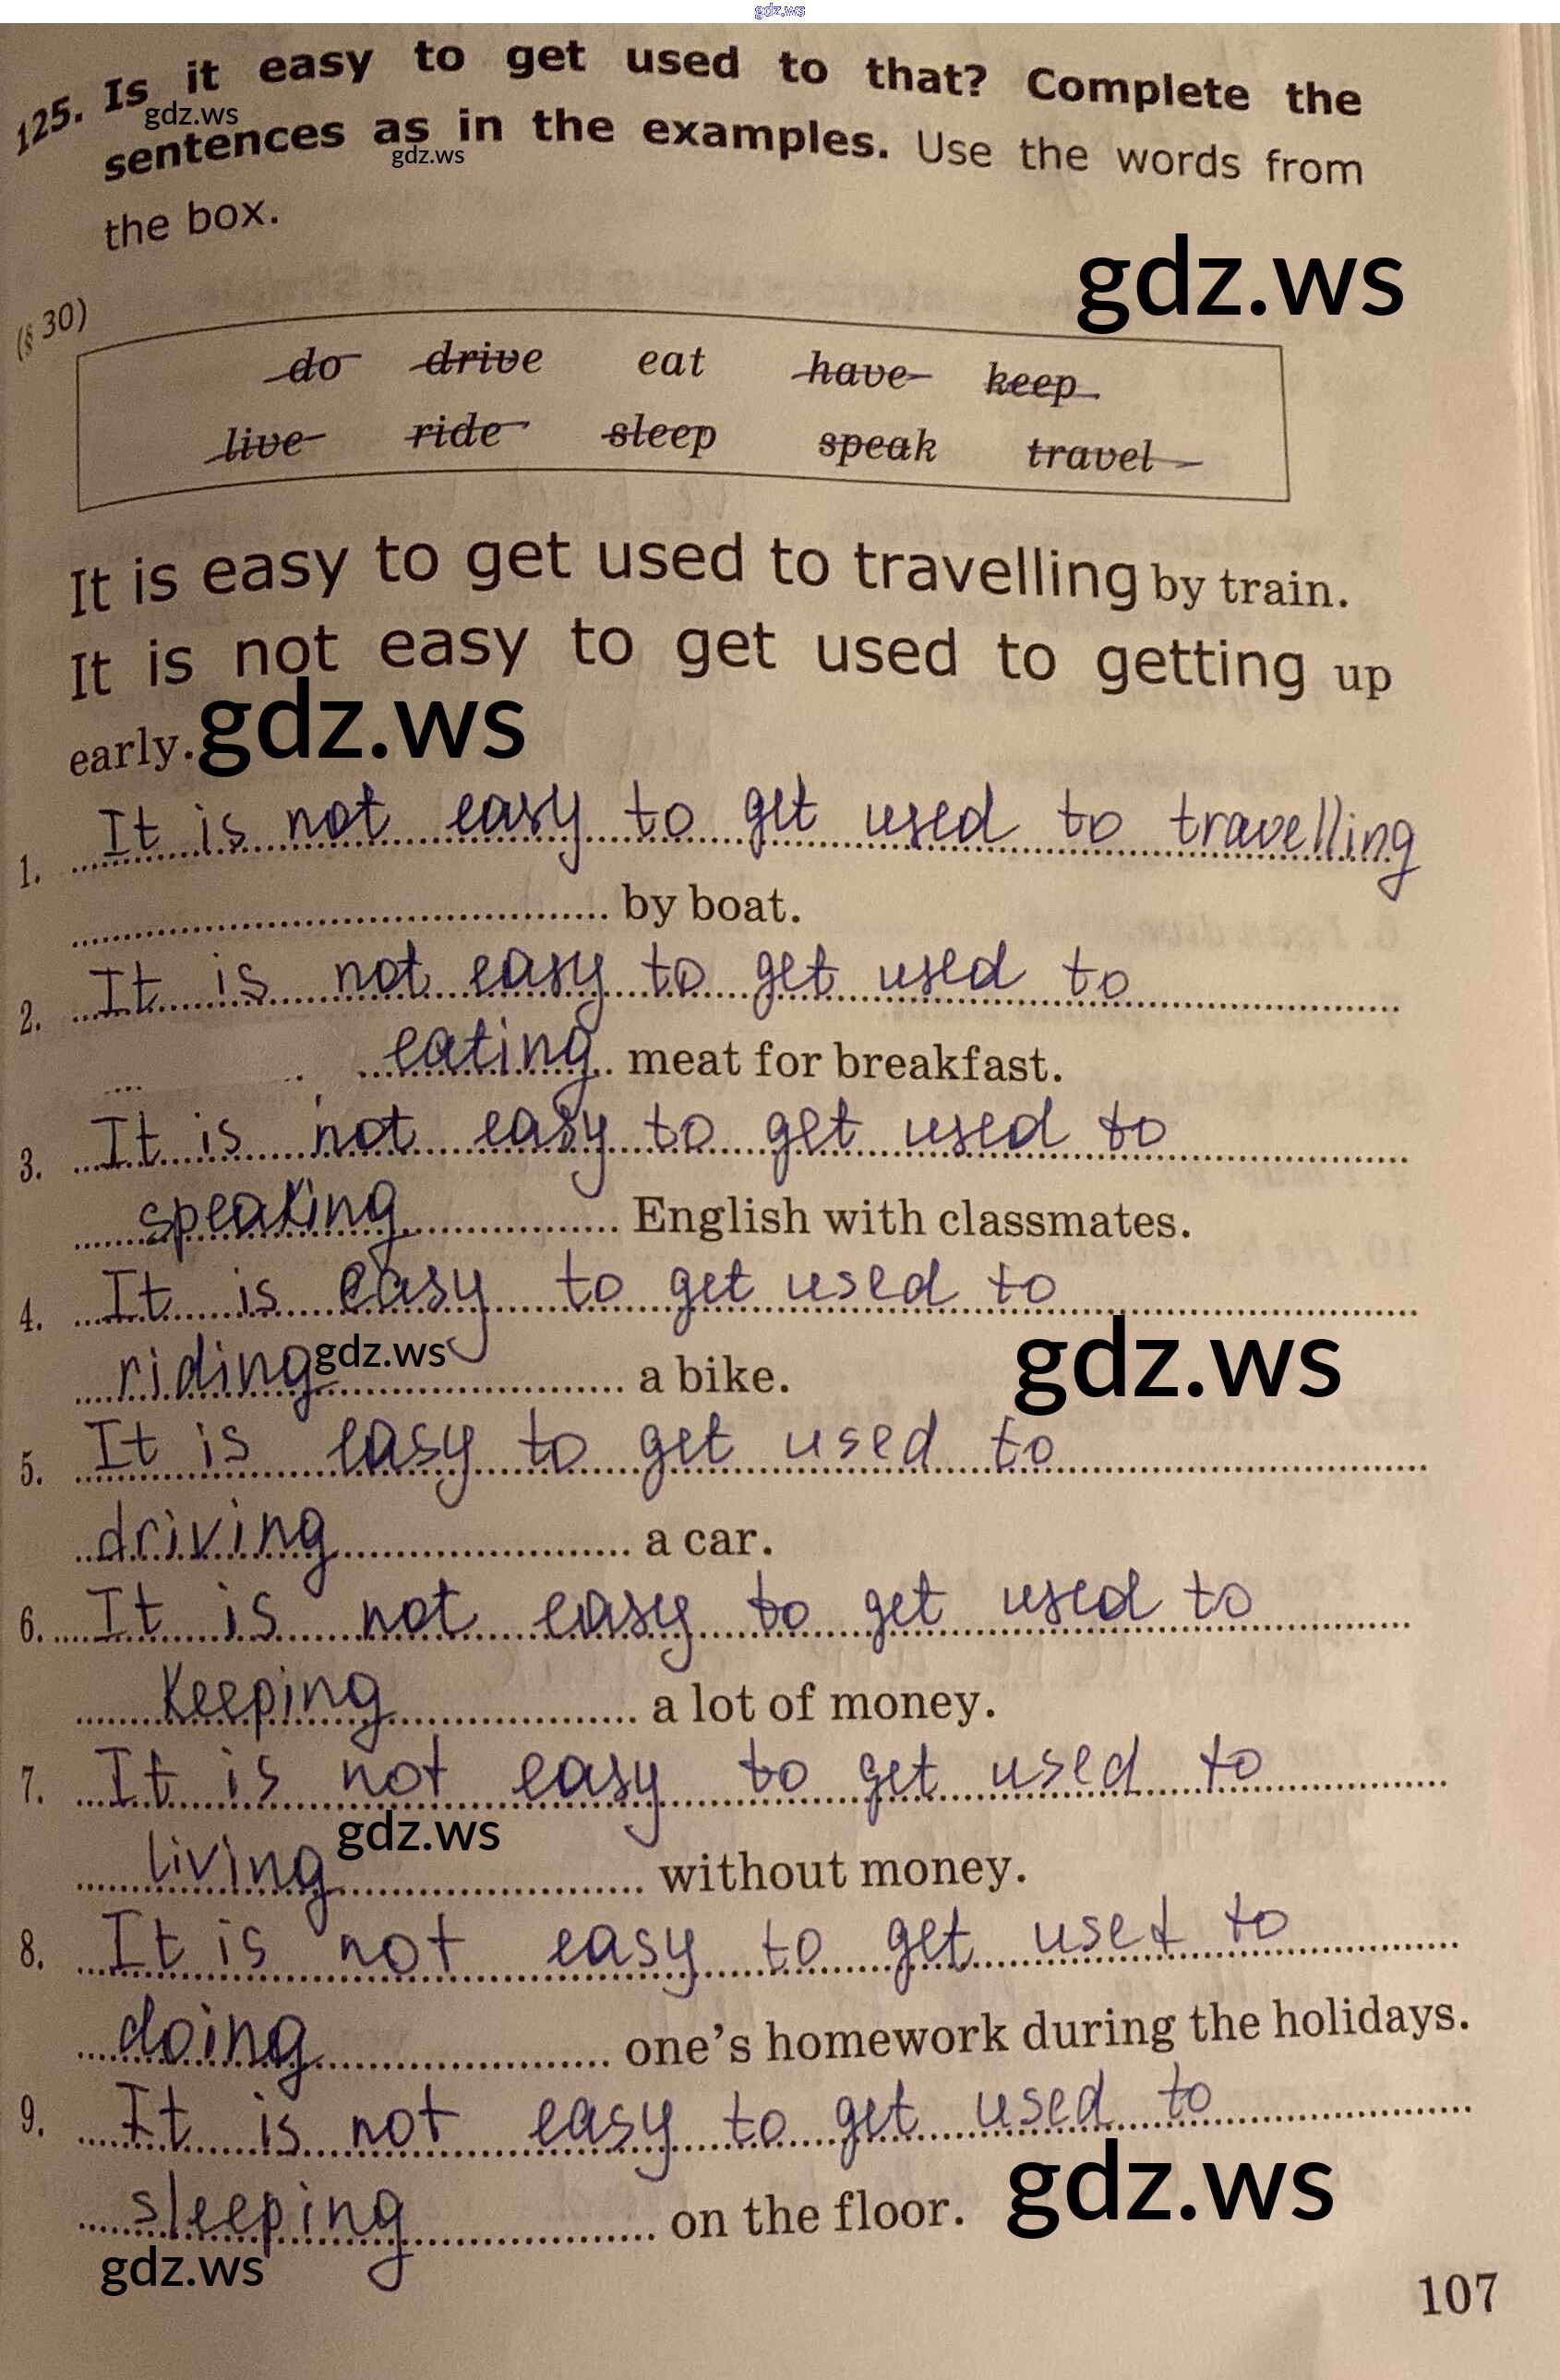 gdz.ws
125. Is it easy to get used to that? Complete the
gdz.ws
sentences as in the examples. Use the words from
gdz.ws
the box.
gdz.ws
(§ 30)
do drive eat have keep
live ride sleep speak travel
It is easy to get used to travelling by train.
It is not easy to get used to getting up
early.
gdz.ws
1. It is not easy to get used to travelling
by boat.
2. It is not easy to get used to
eating meat for breakfast.
3. It is not easy to get used to
speaking English with classmates.
4. It is easy to get used to
riding a bike.
gdz.ws
gdz.ws
5. It is easy to get used to
driving a car.
6. It is not easy to get used to
keeping a lot of money.
7. It is not easy to get used to
gdz.ws
living without money.
8. It is not easy to get uset to
doing one's homework during the holidays.
9. It is not easy to get used to
sleeping on the floor.
gdz.ws
gdz.ws
107